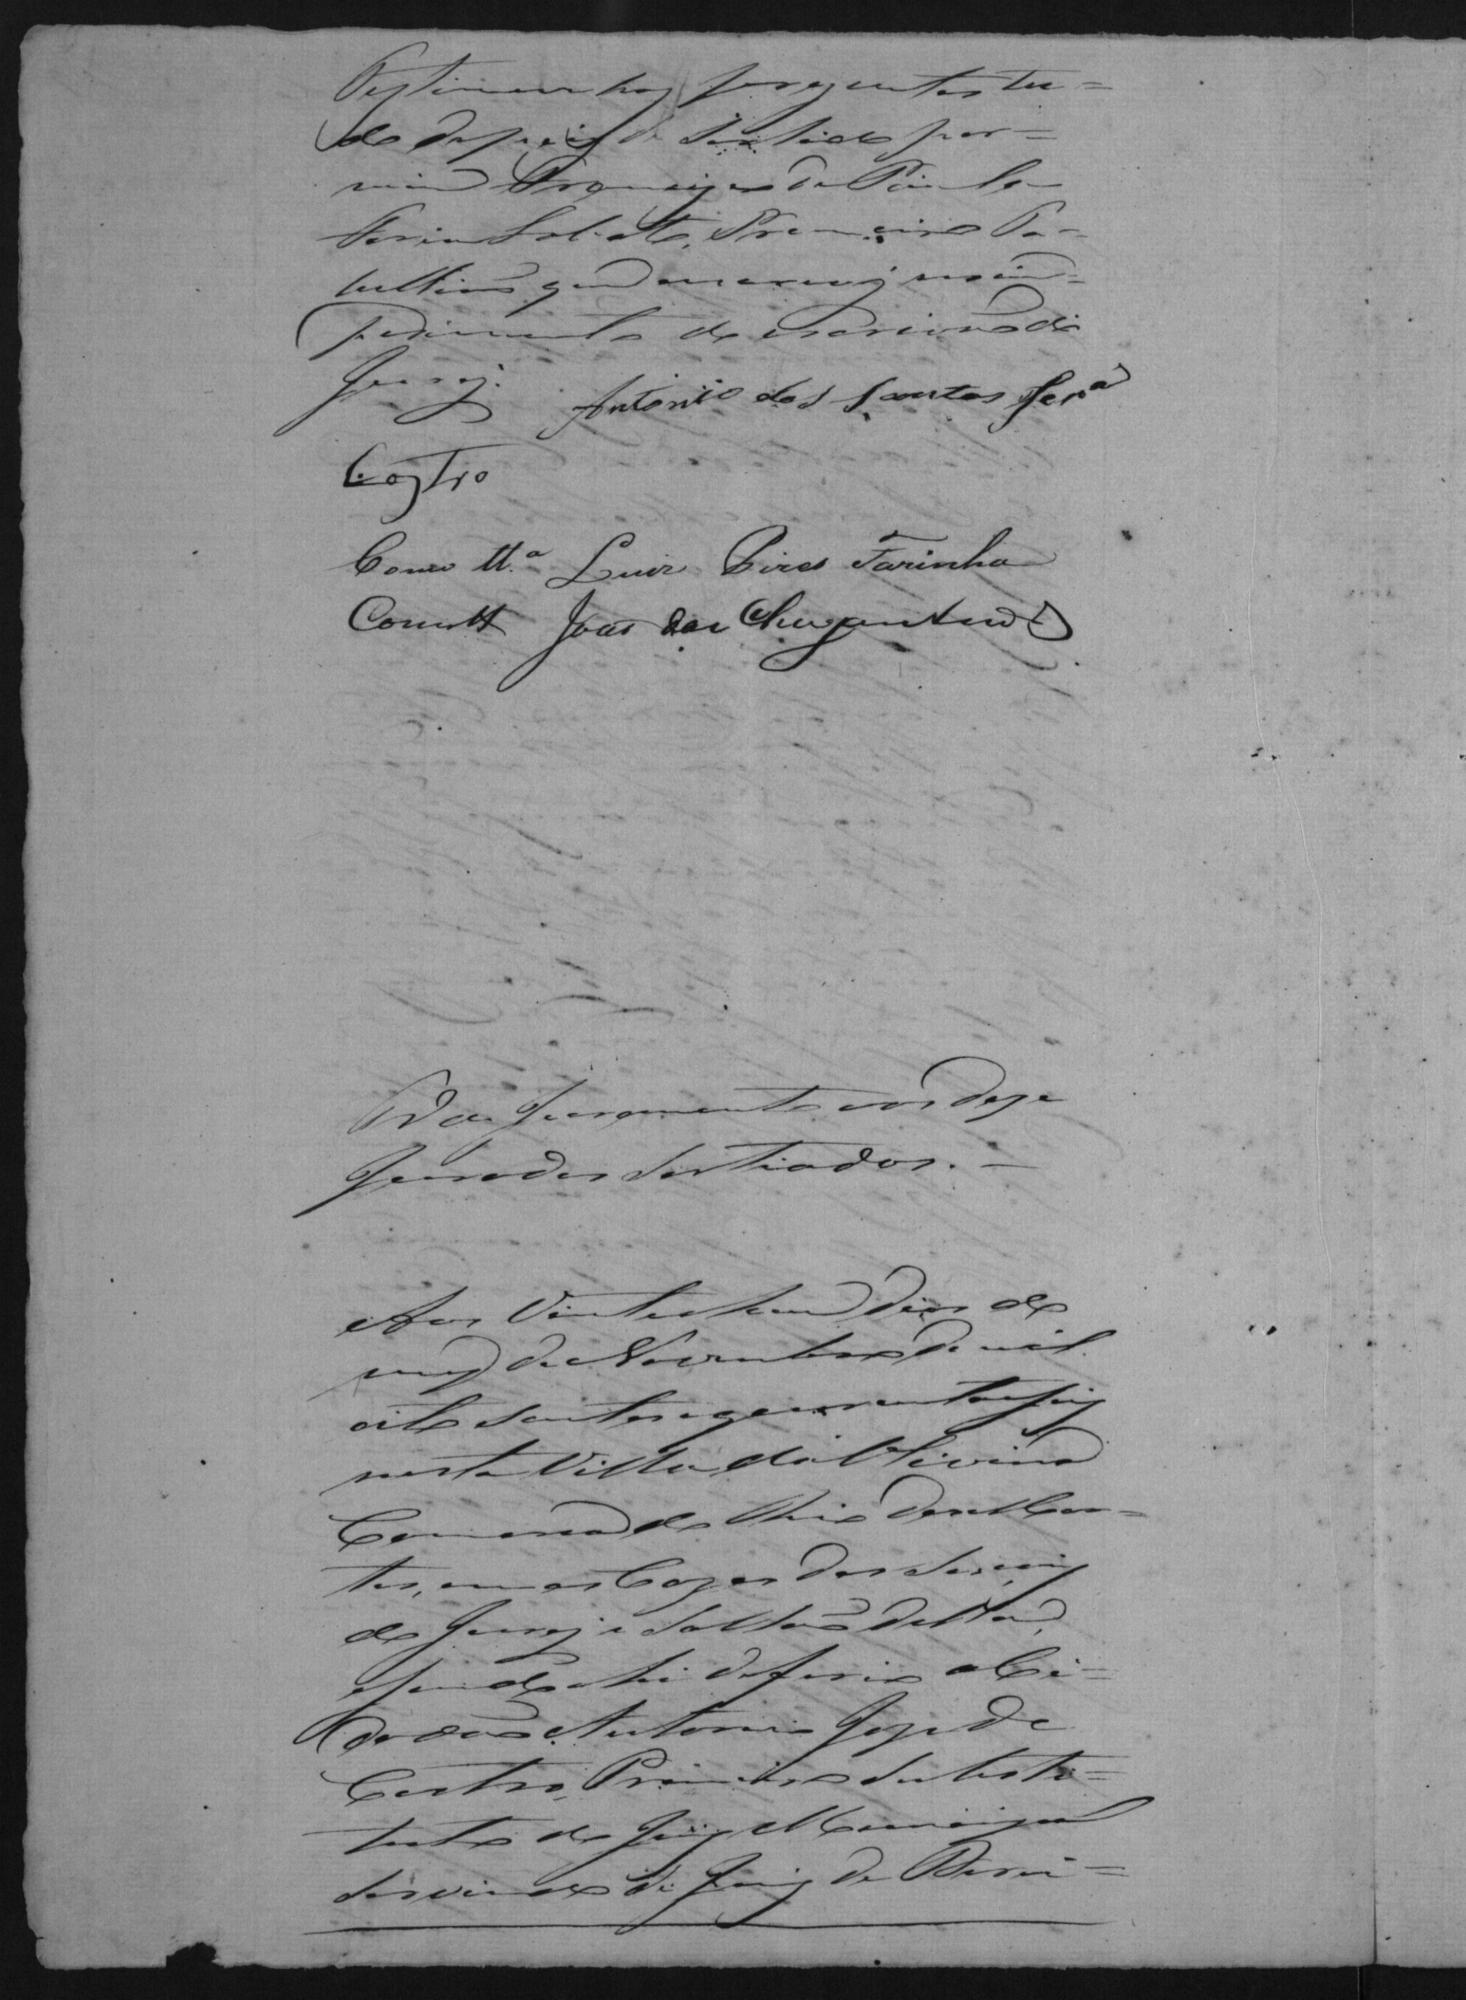 Testimunhas perguntas tu=
do depois de 
mim Francisco de Paula
Faria Lobato, Primeiro Ta=
bellião que o escrevi no im=
pedimento do escrivão do
Jury.
Antonio dos Santos Ferª
Castro
Como tt.ª Luiz Pires Farinha
Como tt João das Chagas
De Juramento aos doze
Jurados sortiados.
Aos Vinte hum dias do
mez de Novembro de mil
oito sentos e quarenta e seis
nesta Villa da Oliveira
Comarca do Rio das Mor=
tes, em as Cazas das Sessoins
do Jury e Sallas della,
e sendo ahi o Ci=
dadão Antonio Joze de
Castro, Primeiro Substi=
tuto do Juiz Municipal
servindo de Juiz de Direi=